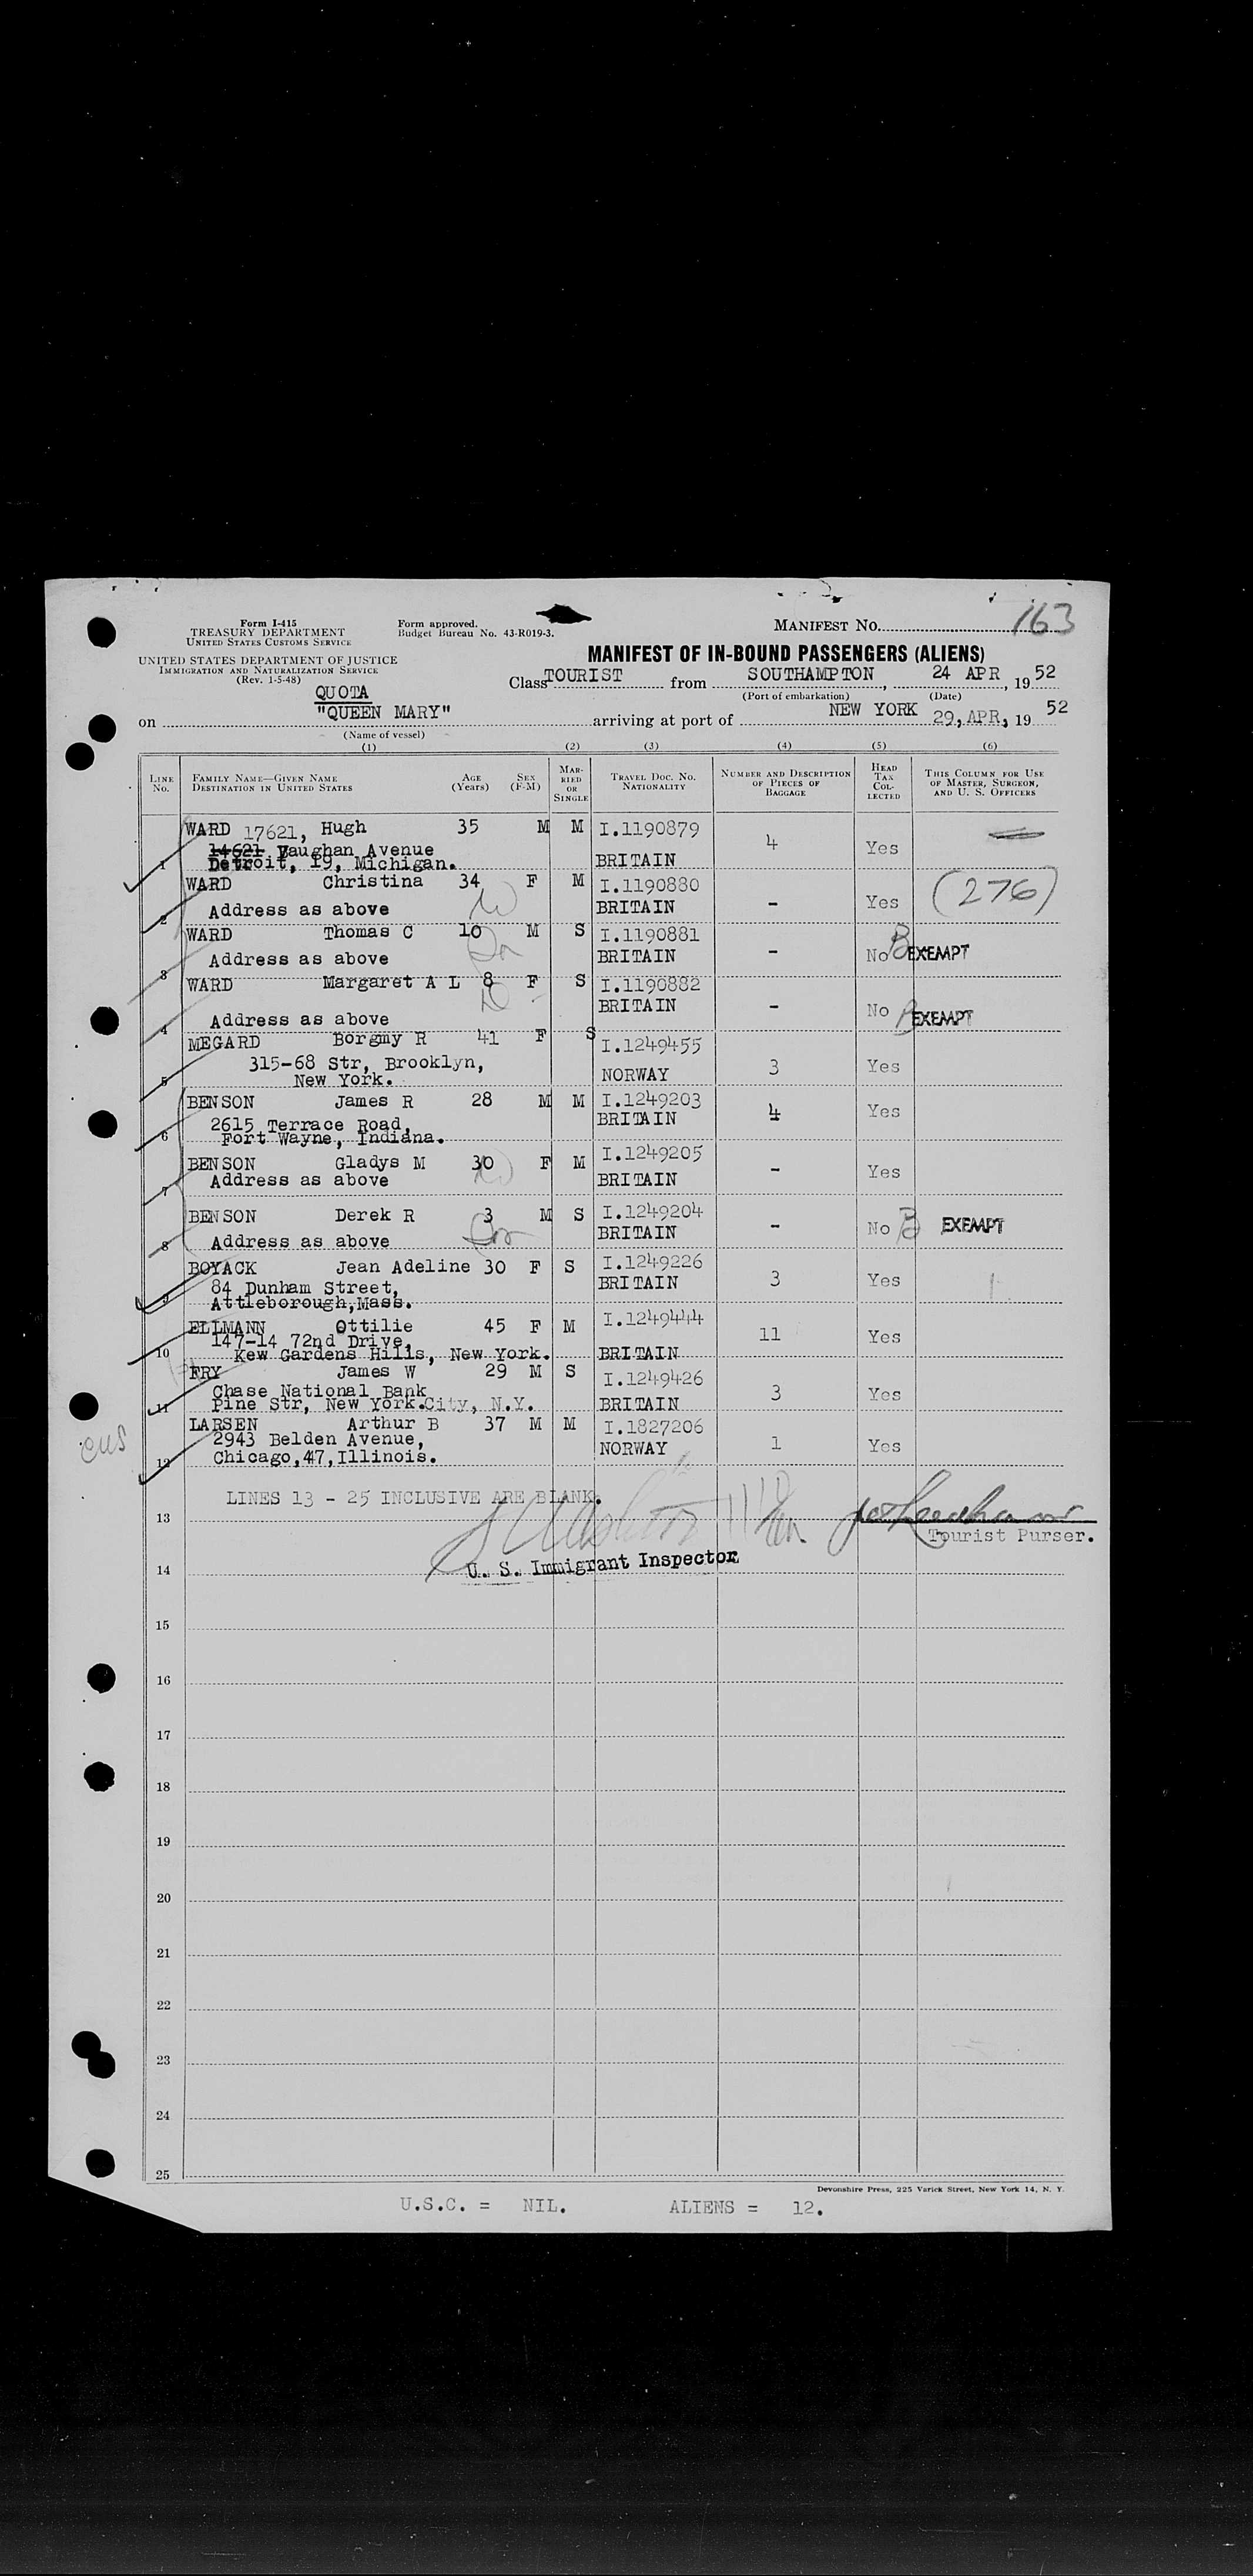 Form I-415
TREASURY DEPARTMENT
UNITED STATES CUSTOMS SERVICE
Form approved.
Budget Bureau No. 43-R019-3.
MANIFEST NO. 163
UNITED STATES DEPARTMENT OF JUSTICE
IMMIGRATION AND NATURALIZATION SERVICE
(Rev. 1-5-48)
MANIFEST OF IN-BOUND PASSENGERS (ALIENS)
Class TOURIST from SOUTHAMPTON, 24 APR, 19 52
(Port of embarkation) (Date)
QUOTA
on "QUEEN MARY" arriving at port of NEW YORK 29, APR, 19 52
(Name of vessel)
(1) (2) (3) (4) (5) (6)
LINE NO. FAMILY NAME—GIVEN NAME DESTINATION IN UNITED STATES AGE (Years) SEX (F-M) MARRIED OR SINGLE TRAVEL DOC. NO. NATIONALITY NUMBER AND DESCRIPTION OF PIECES OF BAGGAGE HEAD TAX COLLECTED THIS COLUMN FOR USE OF MASTER, SURGEON, AND U. S. OFFICERS
WARD 17621, Hugh 35 M M I.1190879
14621 Vaughan Avenue 4 Yes
1 Detroit, 19, Michigan. BRITAIN
WARD Christina 34 F M I.1190880
2 Address as above BRITAIN - Yes (276)
WARD Thomas C 10 M S I.1190881
3 Address as above BRITAIN - No B EXEMPT
WARD Margaret A L 8 F S I.1190882
BRITAIN - No B EXEMPT
4 Address as above
MEGARD Borgny R 41 F S I.1249455
315-68 Str, Brooklyn, 3 Yes
5 New York. NORWAY
BENSON James R 28 M M I.1249203
2615 Terrace Road, BRITAIN 4 Yes
6 Fort Wayne, Indiana.
BENSON Gladys M 30 F M I.1249205
7 Address as above BRITAIN - Yes
BENSON Derek R 3 M S I.1249204
8 Address as above BRITAIN - No B EXEMPT
BOYACK Jean Adeline 30 F S I.1249226
84 Dunham Street, BRITAIN 3 Yes
9 Attleborough, Mass.
ELLMANN Ottilie 45 F M I.1249444
147-14 72nd Drive, 11 Yes
10 Kew Gardens Hills, New York. BRITAIN
FRY James W 29 M S I.1249426
Chase National Bank 3 Yes
11 Pine Str, New York.City, N.Y. BRITAIN
LARSEN Arthur B 37 M M I.1827206
cus 2943 Belden Avenue, NORWAY 1 Yes
12 Chicago,47,Illinois.
LINES 13 - 25 INCLUSIVE ARE BLANK.
13 Tourist Purser.
14 U. S. Immigrant Inspector
15
16
17
18
19
20
21
22
23
24
25
Devonshire Press, 225 Varick Street, New York 14, N. Y.
U.S.C. = NIL. ALIENS = 12.